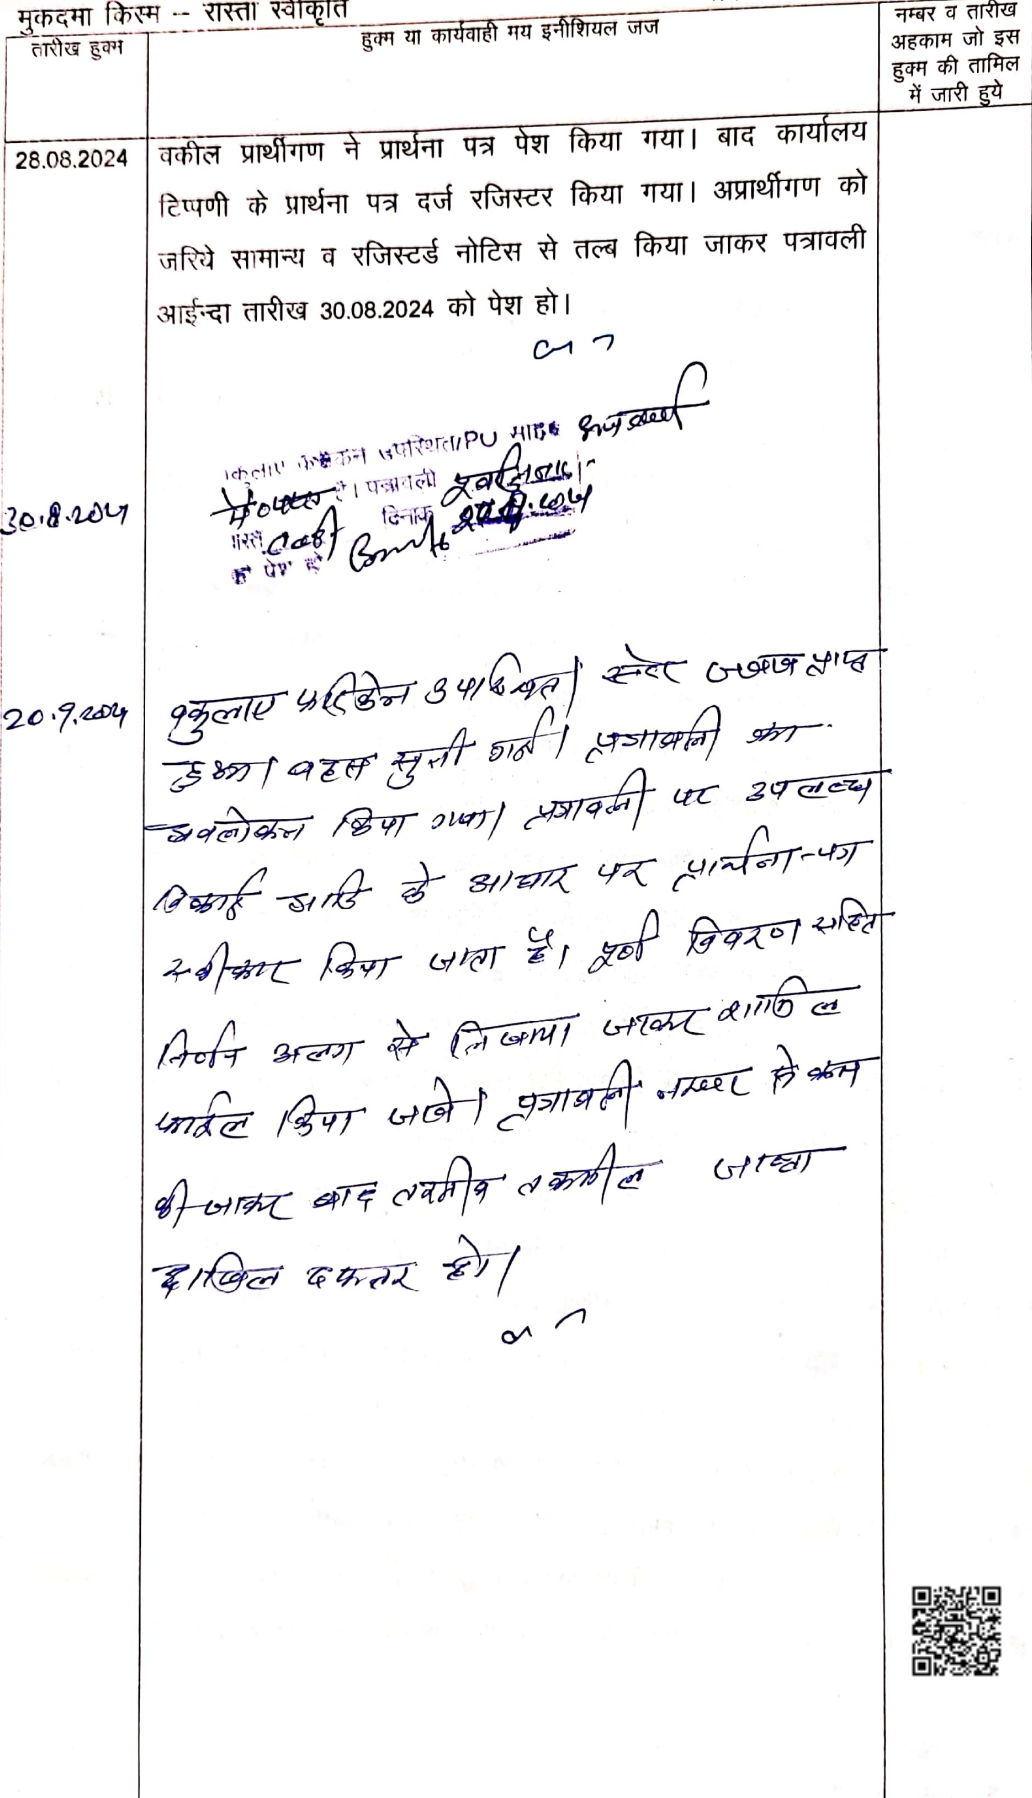 मुकदमा किस्म -- रास्ता स्वीकृति
तारीख हुक्म
हुक्म या कार्यवाही मय इनीशियल जज
नम्बर व तारीख
अहकाम जो इस
हुक्म की तामिल
में जारी हुये
28.08.2024
वकील प्रार्थीगण ने प्रार्थना पत्र पेश किया गया। बाद कार्यालय
टिप्पणी के प्रार्थना पत्र दर्ज रजिस्टर किया गया। अप्रार्थीगण को
जरिये सामान्य व रजिस्टर्ड नोटिस से तल्ब किया जाकर पत्रावली
आईन्दा तारीख 30.08.2024 को पेश हो।
30.8.2024
उपस्थित/PU
है। पत्रावली
दिनांक
पेश हो
20.9.2024
वकुलाए फरिकेन उपस्थित। जवाब प्राप्त
हुआ। बहस सुनी गई। पत्रावली का
अवलोकन किया गया। पत्रावली पर उपलब्ध
रिकार्ड आदि के आधार पर प्रार्थना-पत्र
स्वीकार किया जाता है। पूर्ण विवरण सहित
निर्णय अलग से लिखाया जाकर शामिल
फाईल किया जावे। पत्रावली नम्बर से कम
की जाकर बाद तकमील जाब्ता
दाखिल दफ्तर हो।